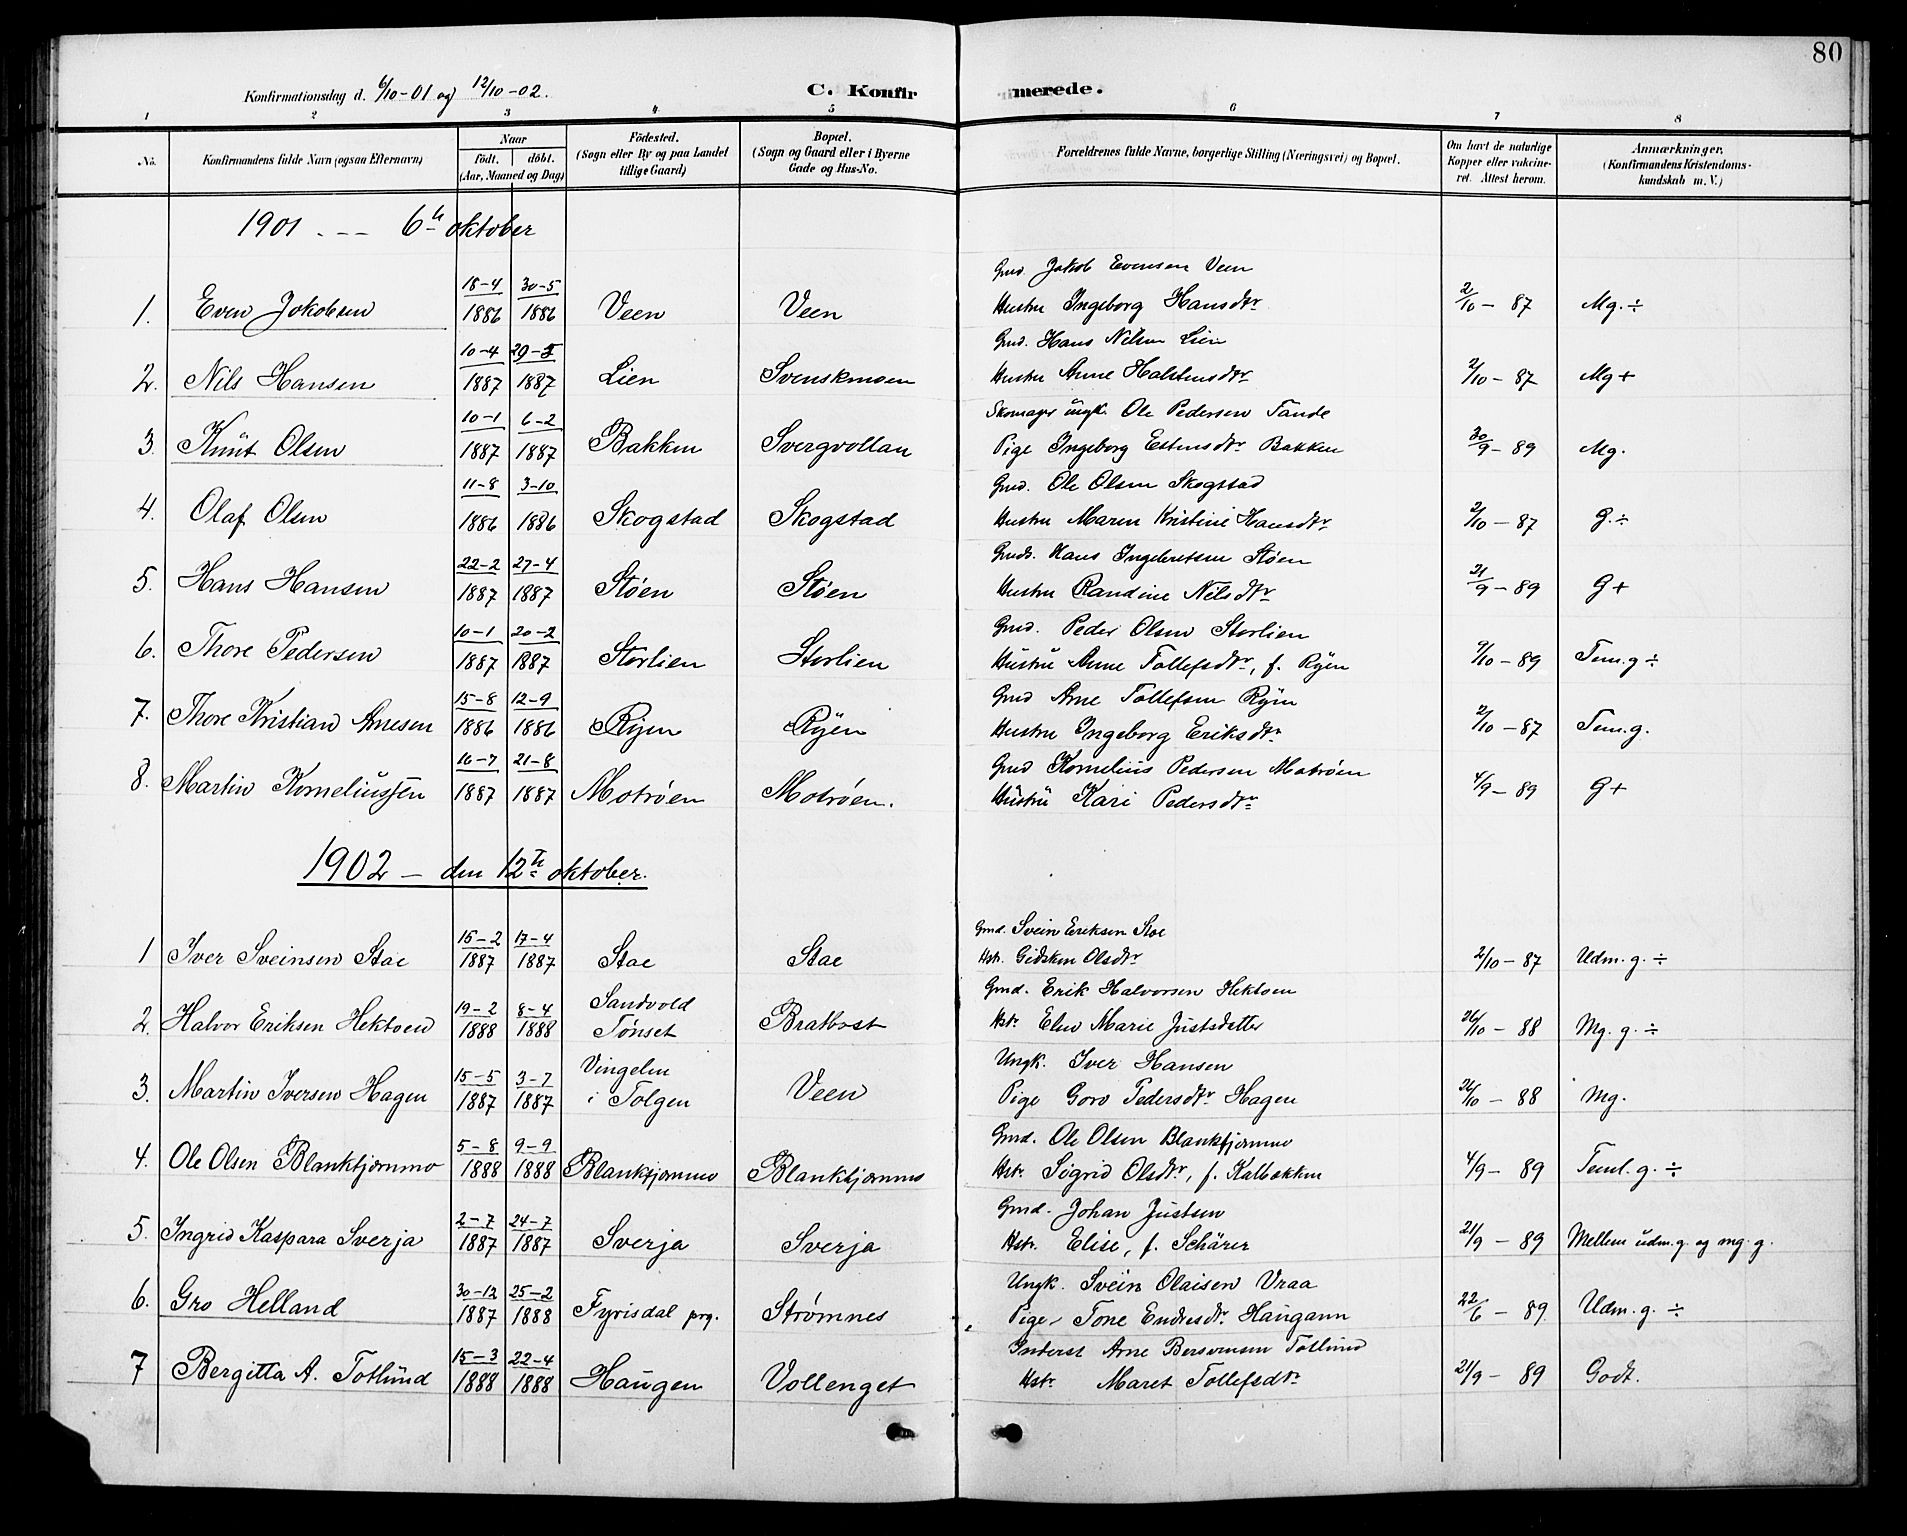 80
Konfirmationsdag d. 6/10-01 og 12/10-02.
C. Konfirmerede.
1 2 3 4 5 6 7 8
No. Konfirmandens fulde Navn (ogsaa Efternavn) Naar født. døbt. (Aar, Maaned og Dag) Fødested. (Sogn eller By og paa Landet tillige Gaard) Bopæl. (Sogn og Gaard eller i Byerne Gade og Hus-No. Forældrenes fulde Navne, borgerlige Stilling (Næringsvei) og Bopæl. Om havt de naturlige Kopper eller vakcineret. Attest herom. Anmærkninger. (Konfirmandens Kristendomskundskab m. V.)
1901 . --- 6te oktober
Gmd. Jakob Evensen Veen
1. Even Jakobsen 18-4 1886 30-5 1886 Veen Veen Hustru Ingeborg Hansdtr 2/10 - 87 Mg. ÷
Gmd. Hans Nilsen Lien
2. Nils Hansen 10-4 1887 29-5 1887 Lien Svenskmoen Hustru Anne Halstensdtr 2/10 - 87 Mg +
Skomager ungk. Ole Pedersen Tande
3. Knut Olsen 10-1 1887 6-2 1887 Bakken Svergvollan Pige Ingeborg Estensdtr Bakken 30/9 - 89 Mg.
Gmd. Ole Olsen Skogstad
4. Olaf Olsen 11-8 1886 3-10 1886 Skogstad Skogstad Hustru Maren Kristine Hansdtr 2/10 - 87 G. ÷
Gmds. Hans Ingebretsen Støen
5. Hans Hansen 22-2 1887 27-4 1887 Støen Støen Hustru Randine Nilsdtr 21/9 - 89 G +
Gmd. Peder Olsen Storlien
6. Thore Pedersen 10-1 1887 20-2 1887 Storlien Storlien Hustru Anne Tollefsdtr, f. Ryen /10 - 89 Tem. g ÷
Gmd Arne Tollefsen Ryen
7. Thore Kristian Arnesen 15-8 1886 12-9 1886 Ryen Ryen Hustru Ingeborg Eriksdtr 2/10 - 87 Tem. g.
Gmd Kornelius Pedersen Motrøen
8. Martin Korneliussen 16-7 1887 21-8 1887 Motrøen Motrøen. Hustru Kari Pedersdtr 4/9 - 89 G +
1902 - den 12te oktober.
Gmd. Svein Eriksen Stae
1 Iver Sveinsen Stae 16-2 1887 17-4 1887 Stae Stae Hstr. Gidsken Olsdtr 2/10 - 87 Udm. g. ÷
Gmd. Erik Halvorsen Hektoen
2. Halvor Eriksen Hektoen 19-2 1888 8-4 1888 Sandvold Tønset Bratbost Hstr. Elen Marie Justsdatter 26/10 - 88 Mg. g. ÷
Ungk. Iver Hansen
3. Martin Iversen Hagen 15-5 1887 3-7 1887 Vingelen i Tolgen Veen Pige Goro Pedersdtr Hagen 26/10 - 88 Mg.
Gmd. Ole Olsen Blanktjernmo
4. Ole Olsen Blanktjernmo 5-8 1888 9-9 1888 Blanktjernmo Blanktjernmo Hstr. Sigrid Olsdtr, f. Kalbækken 4/9 - 89 Teml. g. ÷
Gmd. Johan Justsen
5. Ingrid Kaspara Sverja 2-7 1887 24-7 1887 Sverja Sverja Hstr. Elise, f. Schärer 21/9 - 89 Mellem udm. g. og mg. g.
Ungk. Svein Olaisen Vraa
6. Gro Helland 30-12 1887 25-2 1888 Fyrisdal prg. Strømnes Pige Tone Endresdtr Haugann 22/6 - 89 Udm. g. ÷
Inderst Arne Bersvensen Totlund
7 Bergitta A. Totlund 15-3 1888 22-4 1888 Haugen Vollenget Hstr. Maret Tollefsdtr 21/9 - 89 Godt.